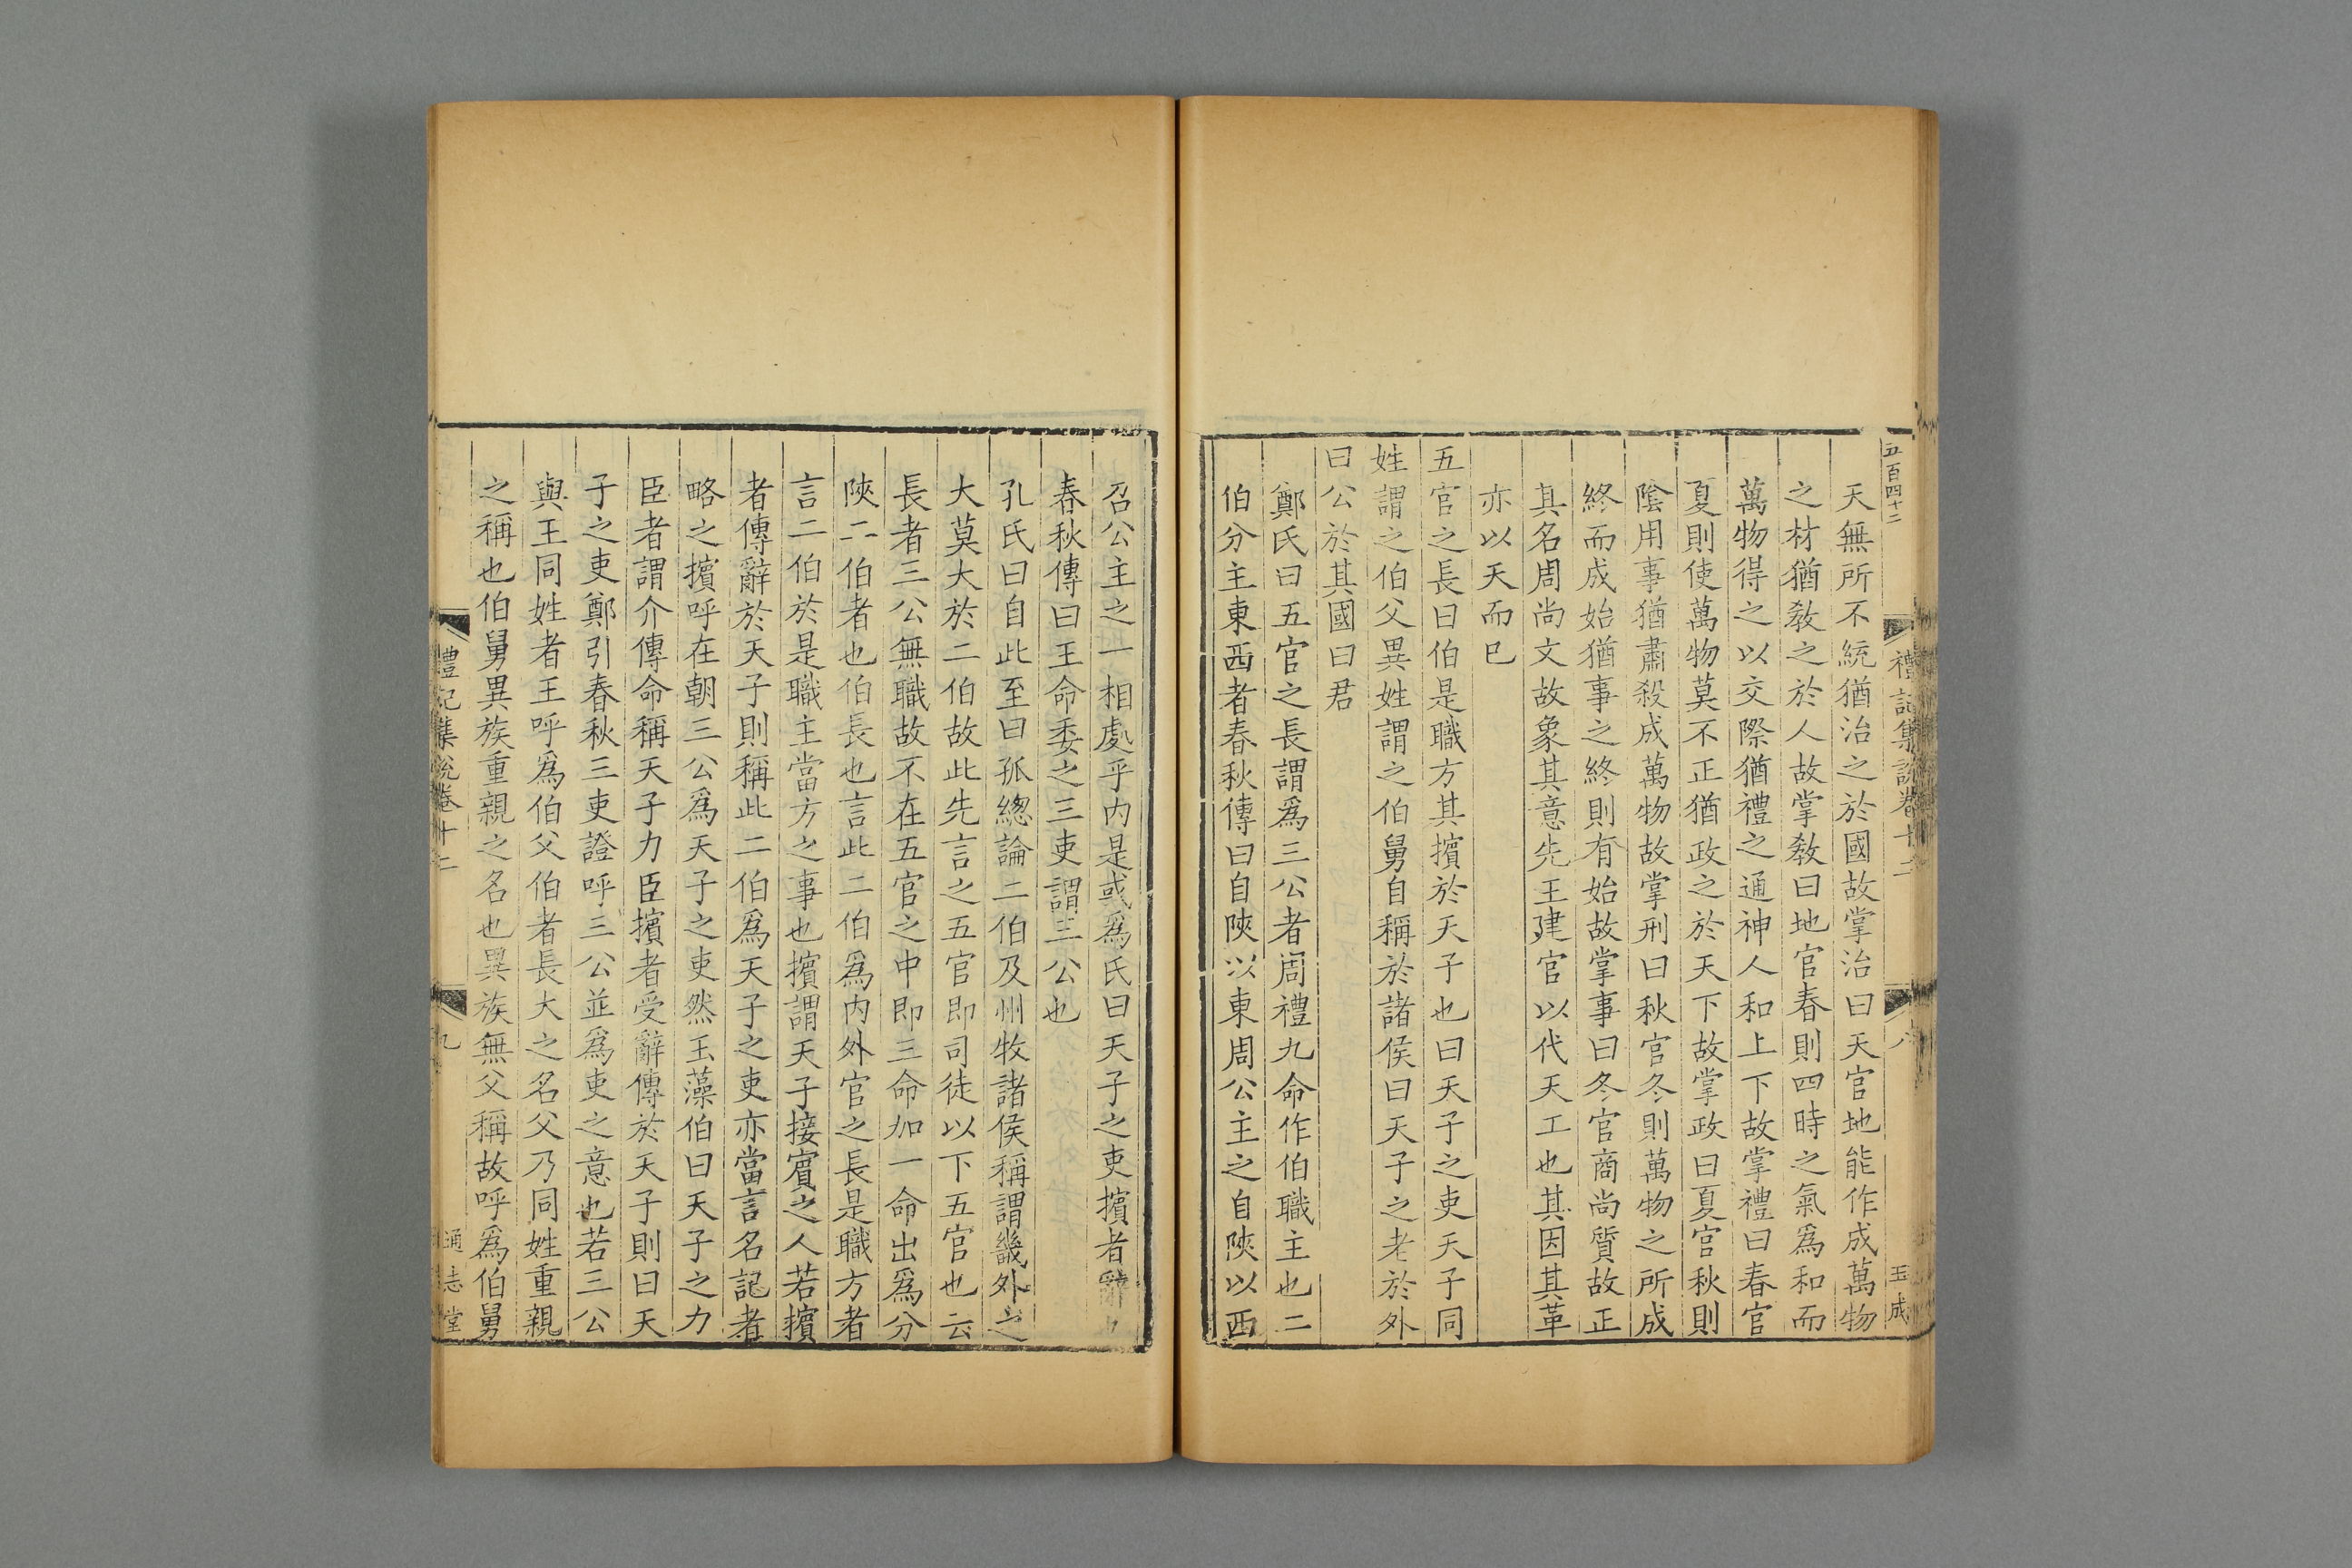 五百四十二
禮記集說卷十二
八
玉成
天無所不統猶治之於國故掌治曰天官地能作成萬物
之材猶敎之於人故掌敎曰地官春則四時之氣爲和而
萬物得之以交際猶禮之通神人和上下故掌禮曰春官
夏則使萬物莫不正猶政之於天下故掌政曰夏官秋則
陰用事猶肅殺成萬物故掌刑曰秋官冬則萬物之所成
終而成始猶事之終則有始故掌事曰冬官商尚質故正
其名周尚文故象其意先王建官以代天工也其因其革
亦以天而已
五官之長曰伯是職方其擯於天子也曰天子之吏天子同
姓謂之伯父異姓謂之伯舅自稱於諸侯曰天子之老於外
曰公於其國曰君
鄭氏曰五官之長謂爲三公者周禮九命作伯職主也二
伯分主東西者春秋傳曰自陝以東周公主之自陝以西
召公主之一相處乎内是或爲氏曰天子之吏擯者辭也
春秋傳曰王命委之三吏謂三公也
孔氏曰自此至曰孤緫論二伯及州牧諸侯稱謂畿外之
大莫大於二伯故此先言之五官即司徒以下五官也云
長者三公無職故不在五官之中即三命加一命出爲分
陝二伯者也伯長也言此二伯爲内外官之長是職方者
言二伯於是職主當方之事也擯謂天子接賔之人若擯
者傳辭於天子則稱此二伯爲天子之吏亦當言名記者
略之擯呼在朝三公爲天子之吏然玉藻伯曰天子之力
臣者謂介傳命稱天子力臣擯者受辭傳於天子則曰天
子之吏鄭引春秋三吏證呼三公並爲吏之意也若三公
與王同姓者王呼爲伯父伯者長大之名父乃同姓重親
之稱也伯舅異族重親之名也異族無父稱故呼爲伯舅
禮記集說卷十二
九
通志堂